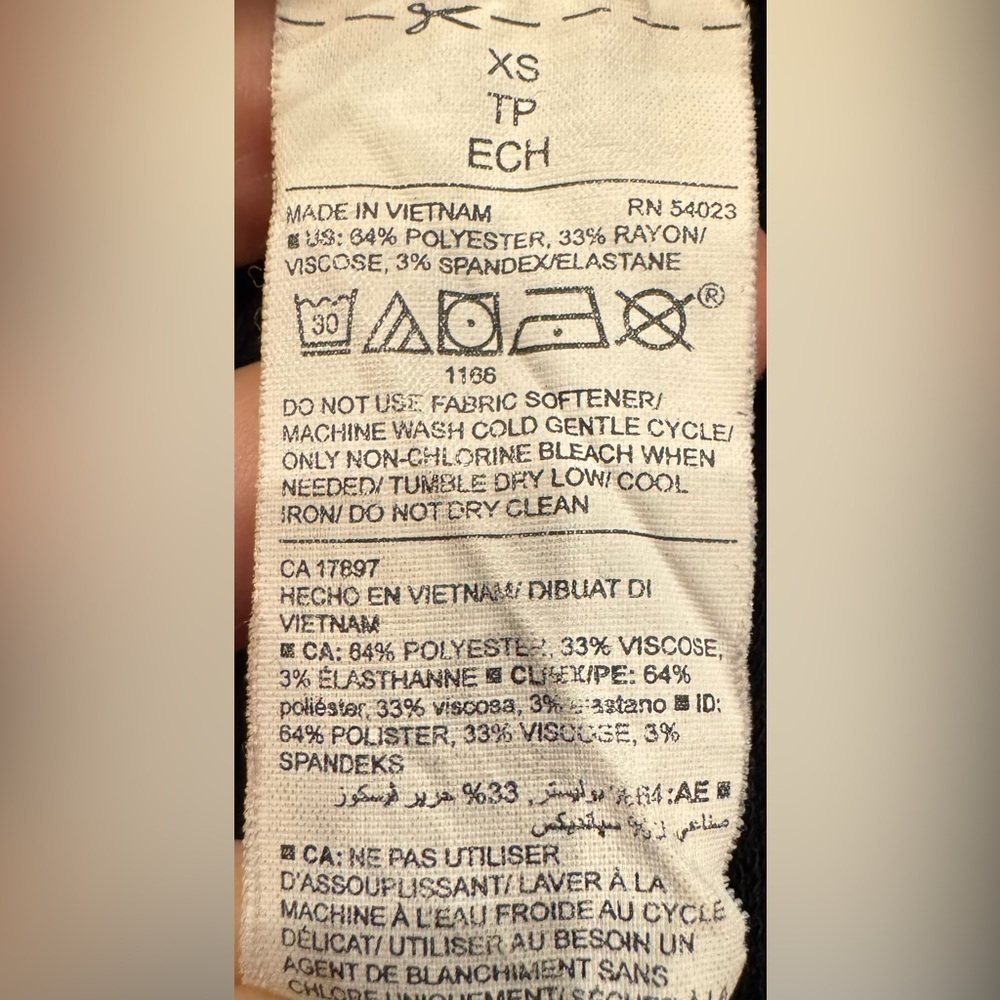 XS
TP
ECH
MADE IN VIETNAM RN 54023
US: 64% POLYESTER, 33% RAYON/
VISCOSE, 3% SPANDEX/ELASTANE
30 ®
1166
DO NOT USE FABRIC SOFTENER/
MACHINE WASH COLD GENTLE CYCLE/
ONLY NON-CHLORINE BLEACH WHEN
NEEDED/ TUMBLE DRY LOW/ COOL
IRON/ DO NOT DRY CLEAN
CA 17897
HECHO EN VIETNAM/ DIBUAT DI
VIETNAM
CA: 64% POLYESTER, 33% VISCOSE,
3% ÉLASTHANNE 64%
poliéster, 33% viscosa, 3% elastano ID:
64% POLISTER, 33% VISCOSE, 3%
SPANDEKS
AE: 64% بوليستر, 33% حرير
صناعي سباندیکس
CA: NE PAS UTILISER
D'ASSOUPLISSANT/ LAVER À LA
MACHINE À L'EAU FROIDE AU CYCLE
DÉLICAT/ UTILISER AU BESOIN UN
AGENT DE BLANCHIMENT SANS
CHLORE UNIQUEMENT/ SÉCHER À LA